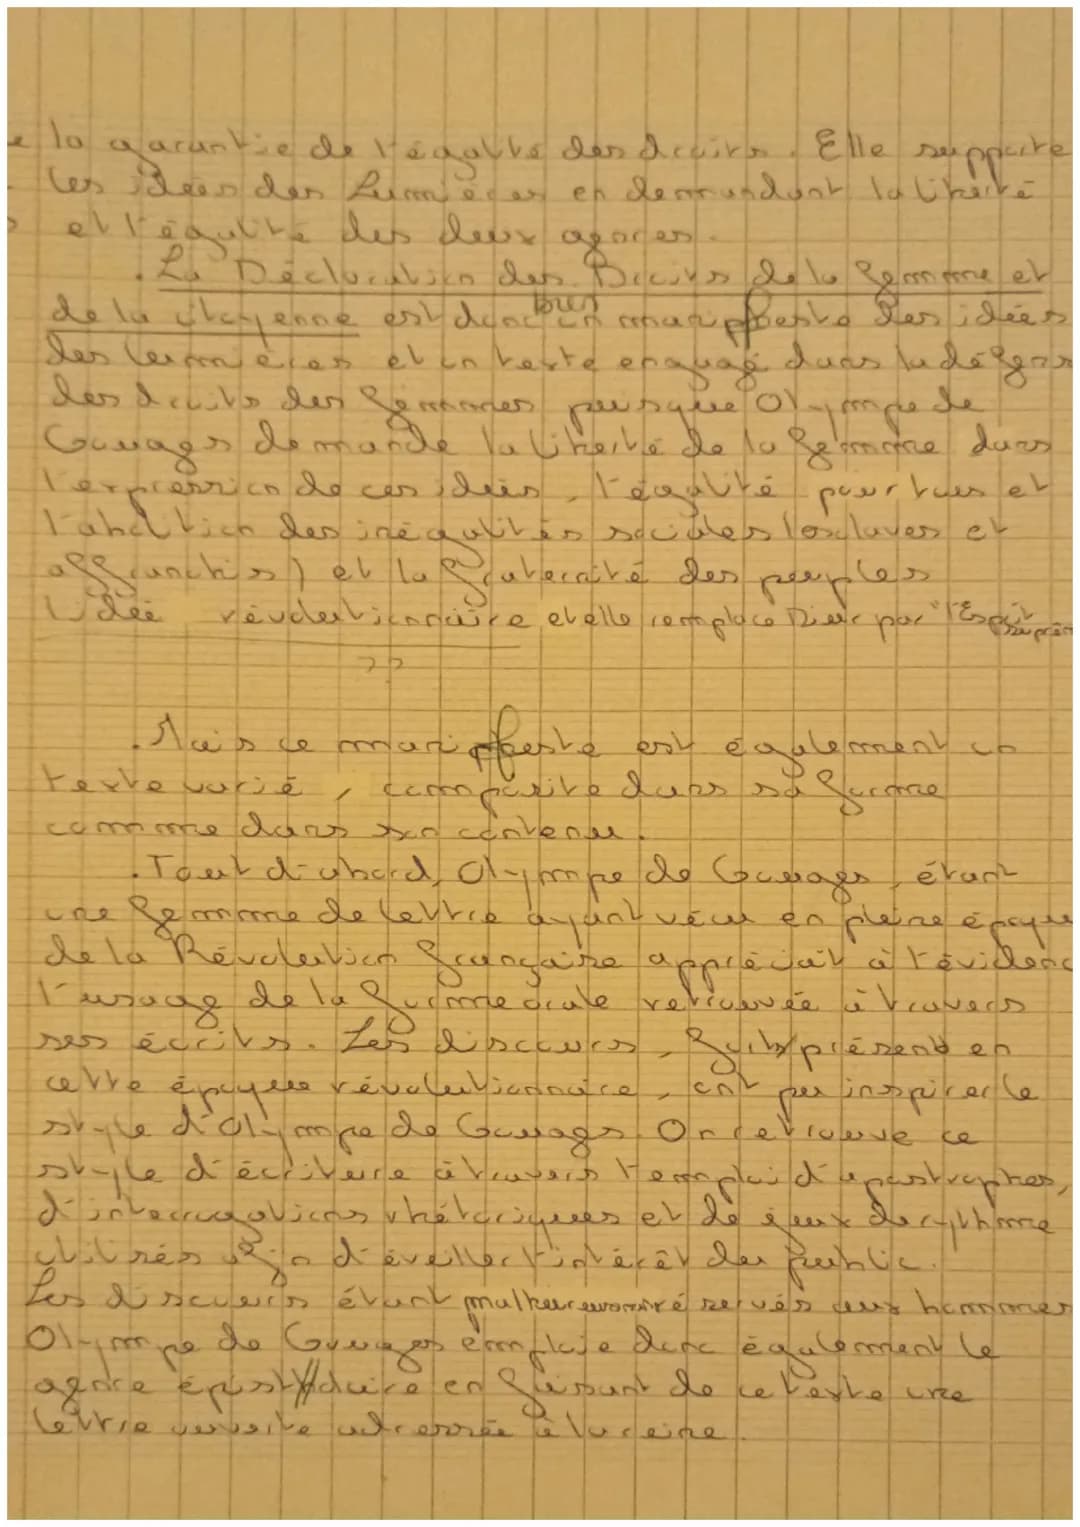 la garantie de l'égalité des droits. Elle supporte
les idées des Lumières en demandant la liberté
et l'égalité des deux genres.
. La Déclaration des Droits de la femme et
de la citoyenne est donc bien un manifeste des idées
des lumières et un texte engagé dans la défens
des droits des femmes puisque Olympe de
Gouges demande la liberté de la femme dans
l'expression de ces idées, l'égalité pour tous et
l'abolition des inégalités sociales (esclaves et
affranchis) et la fraternité des peuples
L'idée révolutionnaire, et elle remplace Dieu par "l'Esprit
suprêm
??
. Mais ce manifeste est également un
texte varié, composite dans sa forme
comme dans son contenu.
. Tout d'abord, Olympe de Gouges, étant
une femme de lettre ayant vécu en pleine époque
de la Révolution française appréciait à l'évidenc
l'usage de la forme orale retrouvée à travers
ses écrits. Les discours, présent en
cette époque révolutionnaire, ont pu inspirer le
style d'Olympe de Gouges. On retrouve ce
style d'écriture à travers l'emploi d'apostrophes,
d'interrogations rhétoriques et de jeux de rythme
utilisés afin d'éveiller l'intérêt du public.
Les discours étant réservés aux hommes
Olympe de Gouges emploie donc également le
genre épistolaire en faisant de ce texte une
lettre ouverte adressée à la reine.